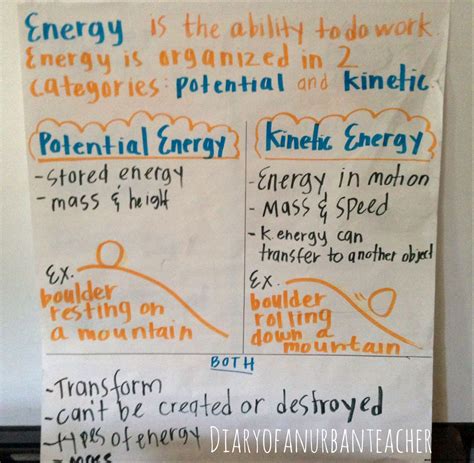 Energy is the ability to do work.
Energy is organized in 2
categories: potential and kinetic.
Potential Energy
- stored energy
- mass & height
Ex.
boulder
resting on
a mountain
Kinetic Energy
- Energy in motion
- Mass & Speed
- K. energy can
transfer to another object
Ex.
boulder
rolling
down a
mountain
BOTH
- Transform
- can't be created or destroyed
- types of energy
DIARYOFANURBANTEACHER